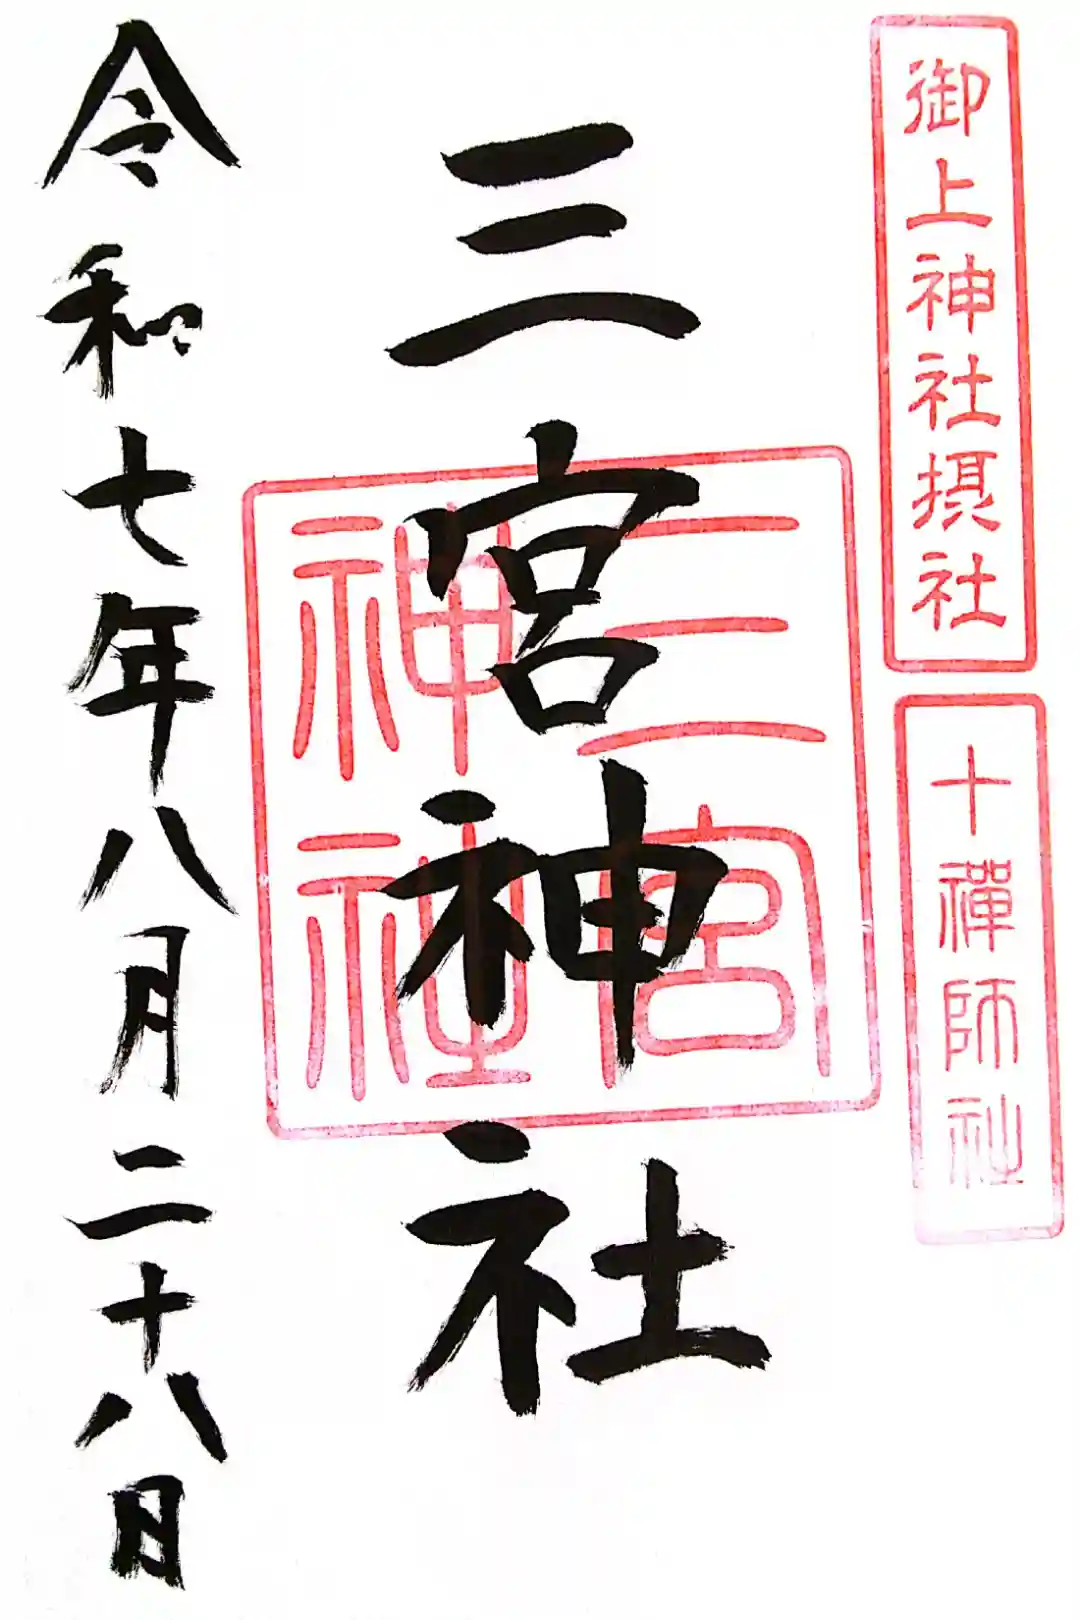 御上神社摂社
十禪師社
三宮神社
三宮
神社
令和七年八月二十八日